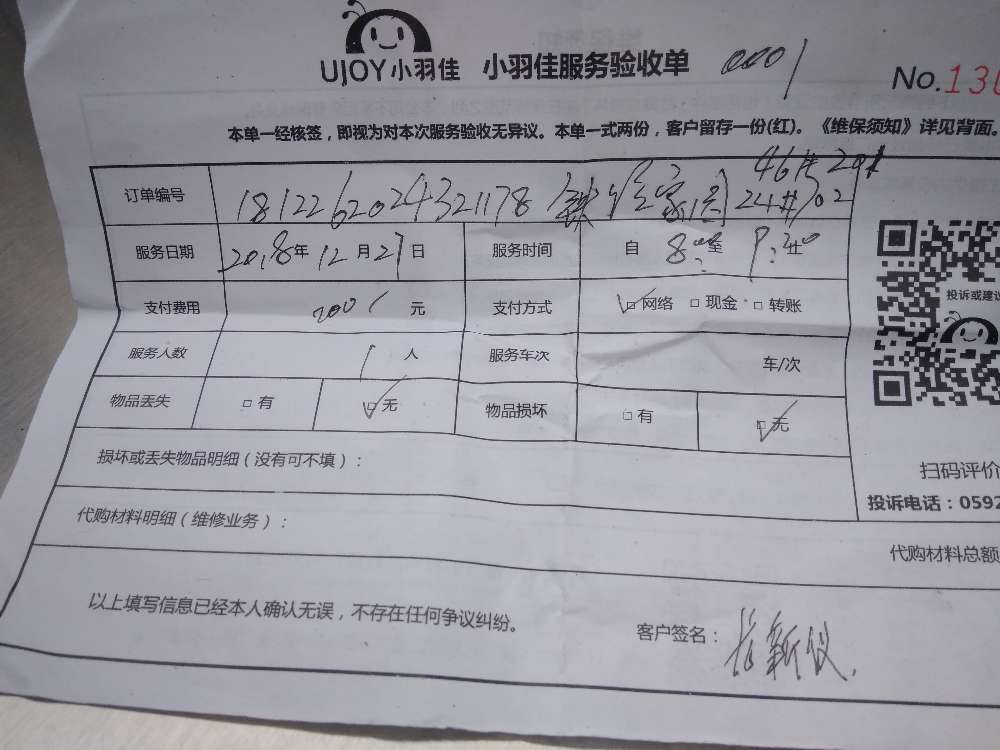 UJOY小羽佳 小羽佳服务验收单 0001 No.130
本单一经核签，即视为对本次服务验收无异议。本单一式两份，客户留存一份(红)。《维保须知》详见背面。
订单编号 1812262024321178 24#702
服务日期 2018年12月27日 服务时间 自 8:00至
支付费用 200 元 支付方式 ☑网络 □现金 □转账
服务人数 1人 服务车次 车/次
物品丢失 □有 ☑无 物品损坏 □有 ☑无
损坏或丢失物品明细（没有可不填）：
代购材料明细（维修业务）：
代购材料总额
以上填写信息已经本人确认无误，不存在任何争议纠纷。
客户签名：
投诉或建议
扫码评价
投诉电话：0592